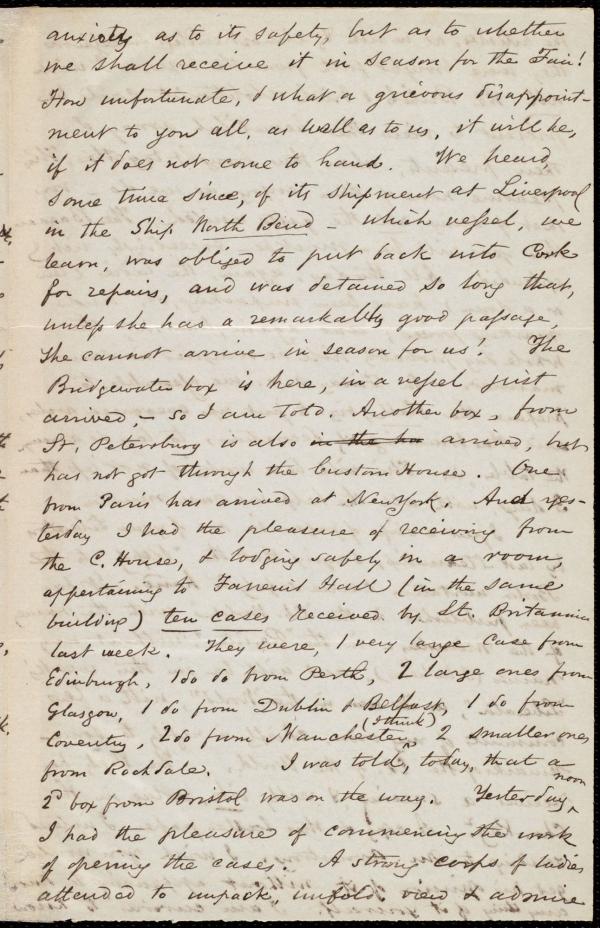 anxiety as to its safety, but as to whether
we shall receive it in season for the Fair!
How unfortunate, & what a grievous disappoint-
ment to you all, as well as to us, it will be,
if it does not come to hand. We heard,
some time since, of its shipment at Liverpool
in the Ship North Bend - which vessel, we
learn, was obliged to put back into Cork
for repairs, and was detained so long that,
unless she has a remarkably good passage,
she cannot arrive in season for us! The
Bridgewater box is here, in a vessel just
arrived, - so I am told. Another box, from
St. Petersburg is also in the har arrived, but
has not got through the Custom House. One
from Paris has arrived at New York. And yes-
terday I had the pleasure of receiving from
the C. House, & lodging safely in a room,
appertaining to Faneuil Hall (in the same
building) ten cases received by St. Britannia
last week. They were, 1 very large case from
Edinburgh, 1 do do from Perth, 2 large ones from
Glasgow, 1 do from Dublin & Belfast, 1 do from
Coventry, 2 do from Manchester, (I think) 2 smaller ones
from Rochdale. I was told, today, that a
2d box from Bristol was on the way. Yesterday noon
I had the pleasure of commencing the work
of opening the cases. A strong corps of ladies
attended to unpack, unfold, view & admire